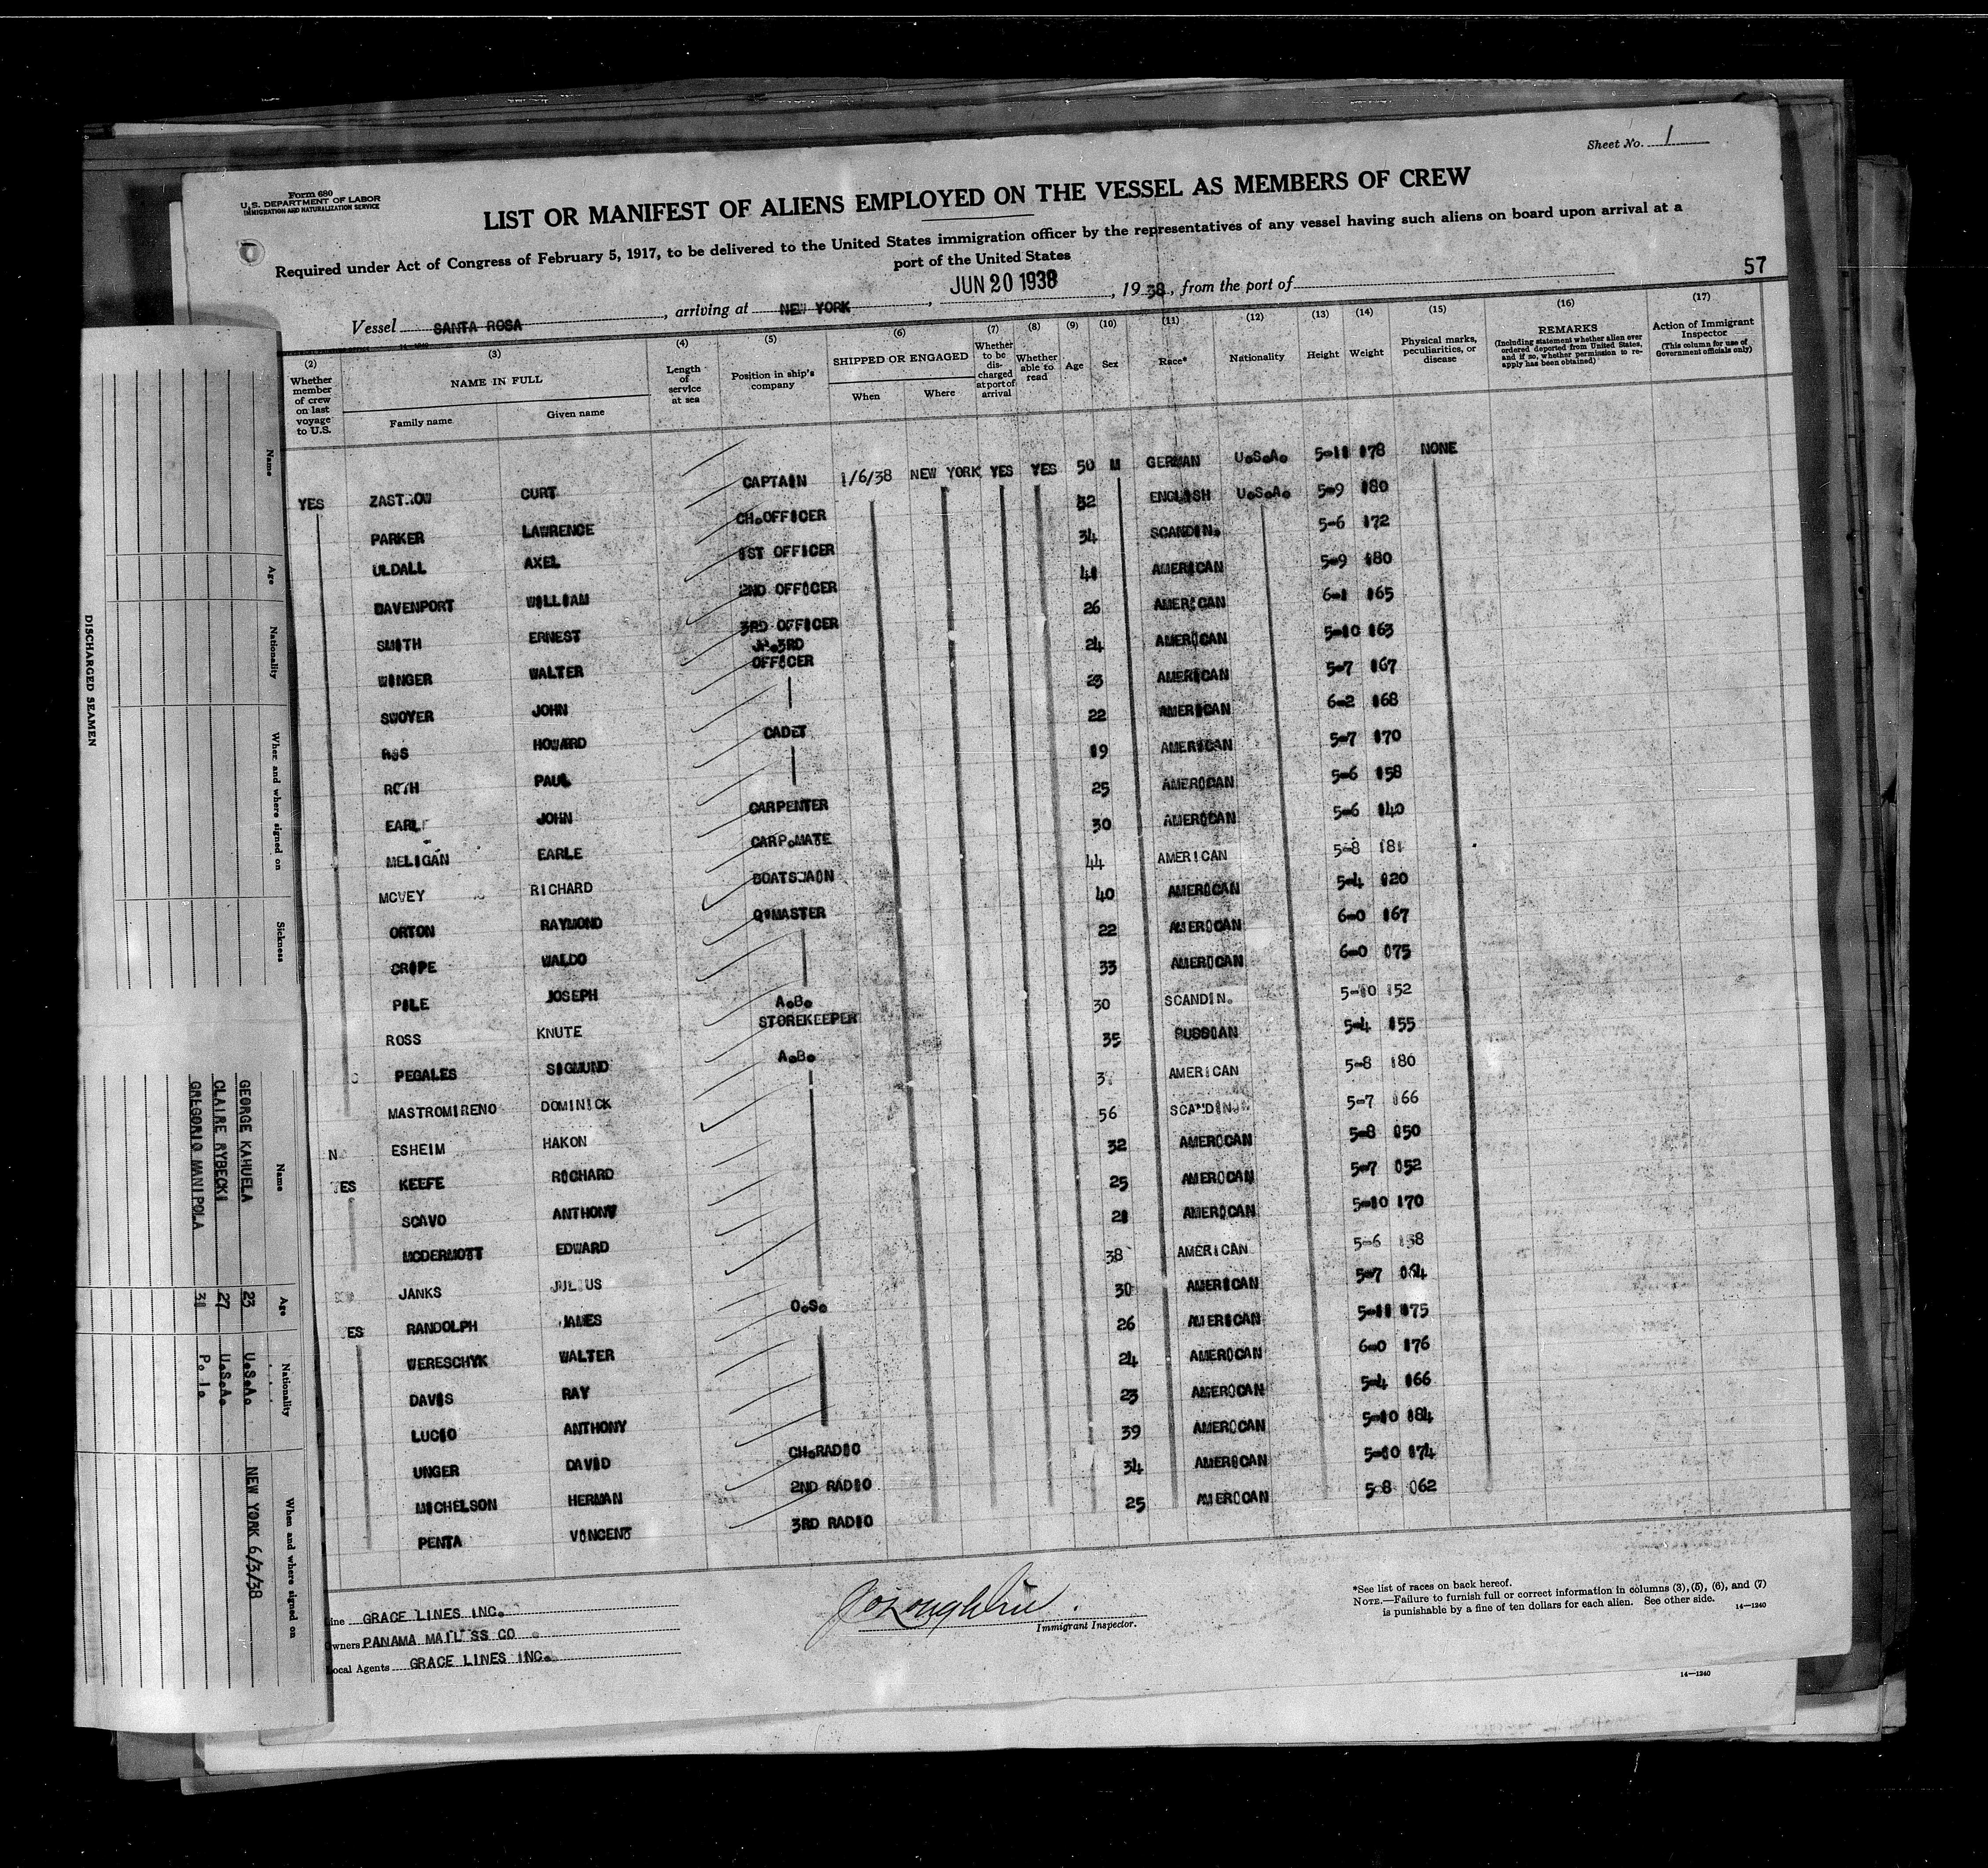 Sheet No. 1
Form 680
U. S. DEPARTMENT OF LABOR
IMMIGRATION AND NATURALIZATION SERVICE
LIST OR MANIFEST OF ALIENS EMPLOYED ON THE VESSEL AS MEMBERS OF CREW
Required under Act of Congress of February 5, 1917, to be delivered to the United States immigration officer by the representatives of any vessel having such aliens on board upon arrival at a
port of the United States
57
Vessel SANTA ROSA, arriving at NEW YORK, JUN 20 1938, 1938, from the port of
(2) (3) (4) (5) (6) (7) (8) (9) (10) (11) (12) (13) (14) (15) (16) (17)
Whether member of crew on last voyage to U.S.
NAME IN FULL
Family name Given name
Length of service at sea
Position in ship's company
SHIPPED OR ENGAGED
When Where
Whether to be discharged at port of arrival
Whether able to read
Age
Sex
Race*
Nationality
Height
Weight
Physical marks, peculiarities, or disease
REMARKS
(Including statement whether alien ever ordered deported from United States, and if so, whether permission to reapply has been obtained)
Action of Immigrant Inspector
(This column for use of Government officials only)
YES ZASTROW CURT CAPTAIN 1/6/38 NEW YORK YES YES 50 M GERMAN U.S.A. 5-11 178 NONE
PARKER LAWRENCE CH.OFFICER 32 ENGLISH U.S.A. 5-9 180
ULDALL AXEL 1ST OFFICER 34 SCANDIN. 5-6 172
DAVENPORT WILLIAM 2ND OFFICER 41 AMERICAN 5-9 180
SMITH ERNEST 3RD OFFICER 26 AMERICAN 6-1 165
WINGER WALTER JR.3RD OFFICER 24 AMERICAN 5-10 163
SWOYER JOHN 23 AMERICAN 5-7 167
HOWARD CADET 22 AMERICAN 6-2 168
ROTH PAUL 19 AMERICAN 5-7 170
EARLE JOHN CARPENTER 25 AMERICAN 5-6 158
MELIGAN EARLE CARP.MATE 30 AMERICAN 5-6 140
MCVEY RICHARD BOATSWAIN 44 AMERICAN 5-8 181
ORTON RAYMOND Q.MASTER 40 AMERICAN 5-4 120
CRIPE WALDO 22 AMERICAN 6-0 167
PILE JOSEPH A.B. 33 AMERICAN 6-0 175
ROSS KNUTE STOREKEEPER 30 SCANDIN. 5-10 152
PEGALES SIGMUND A.B. 35 RUSSIAN 5-4 155
MASTROMIRENO DOMINICK AMERICAN 5-8 180
ESHEIM HAKON 56 SCANDIN. 5-7 166
YES KEEFE RICHARD 32 AMERICAN 5-8 150
SCAVO ANTHONY 25 AMERICAN 5-7 152
MCDERMOTT EDWARD 21 AMERICAN 5-10 170
JANKS JULIUS 38 AMERICAN 5-6 158
YES RANDOLPH JAMES O.S. 30 AMERICAN 5-7 164
WERESCHYK WALTER 26 AMERICAN 5-11 175
DAVIS RAY 24 AMERICAN 6-0 176
LUCIO ANTHONY 23 AMERICAN 5-4 166
UNGER DAVID CH.RADIO 39 AMERICAN 5-10 184
MICHELSON HERMAN 2ND RADIO 34 AMERICAN 5-10 174
PENTA VINCENT 3RD RADIO 25 AMERICAN 5-8 162
Line GRACE LINES INC.
Owners PANAMA MAIL SS CO
Local Agents GRACE LINES INC.
Immigrant Inspector.
*See list of races on back hereof.
NOTE.—Failure to furnish full or correct information in columns (3), (5), (6), and (7)
is punishable by a fine of ten dollars for each alien. See other side.
14—1240
14—1240
DISCHARGED SEAMEN
Name Age Nationality When and where signed on Sickness
Name Age Nationality When and where signed on
GEORGE KAHUELA 23 U.S.A. NEW YORK 6/3/38
CLAIRE RYBECKI 27 U.S.A.
GREGORIO MANIPOLA 31 P.I.